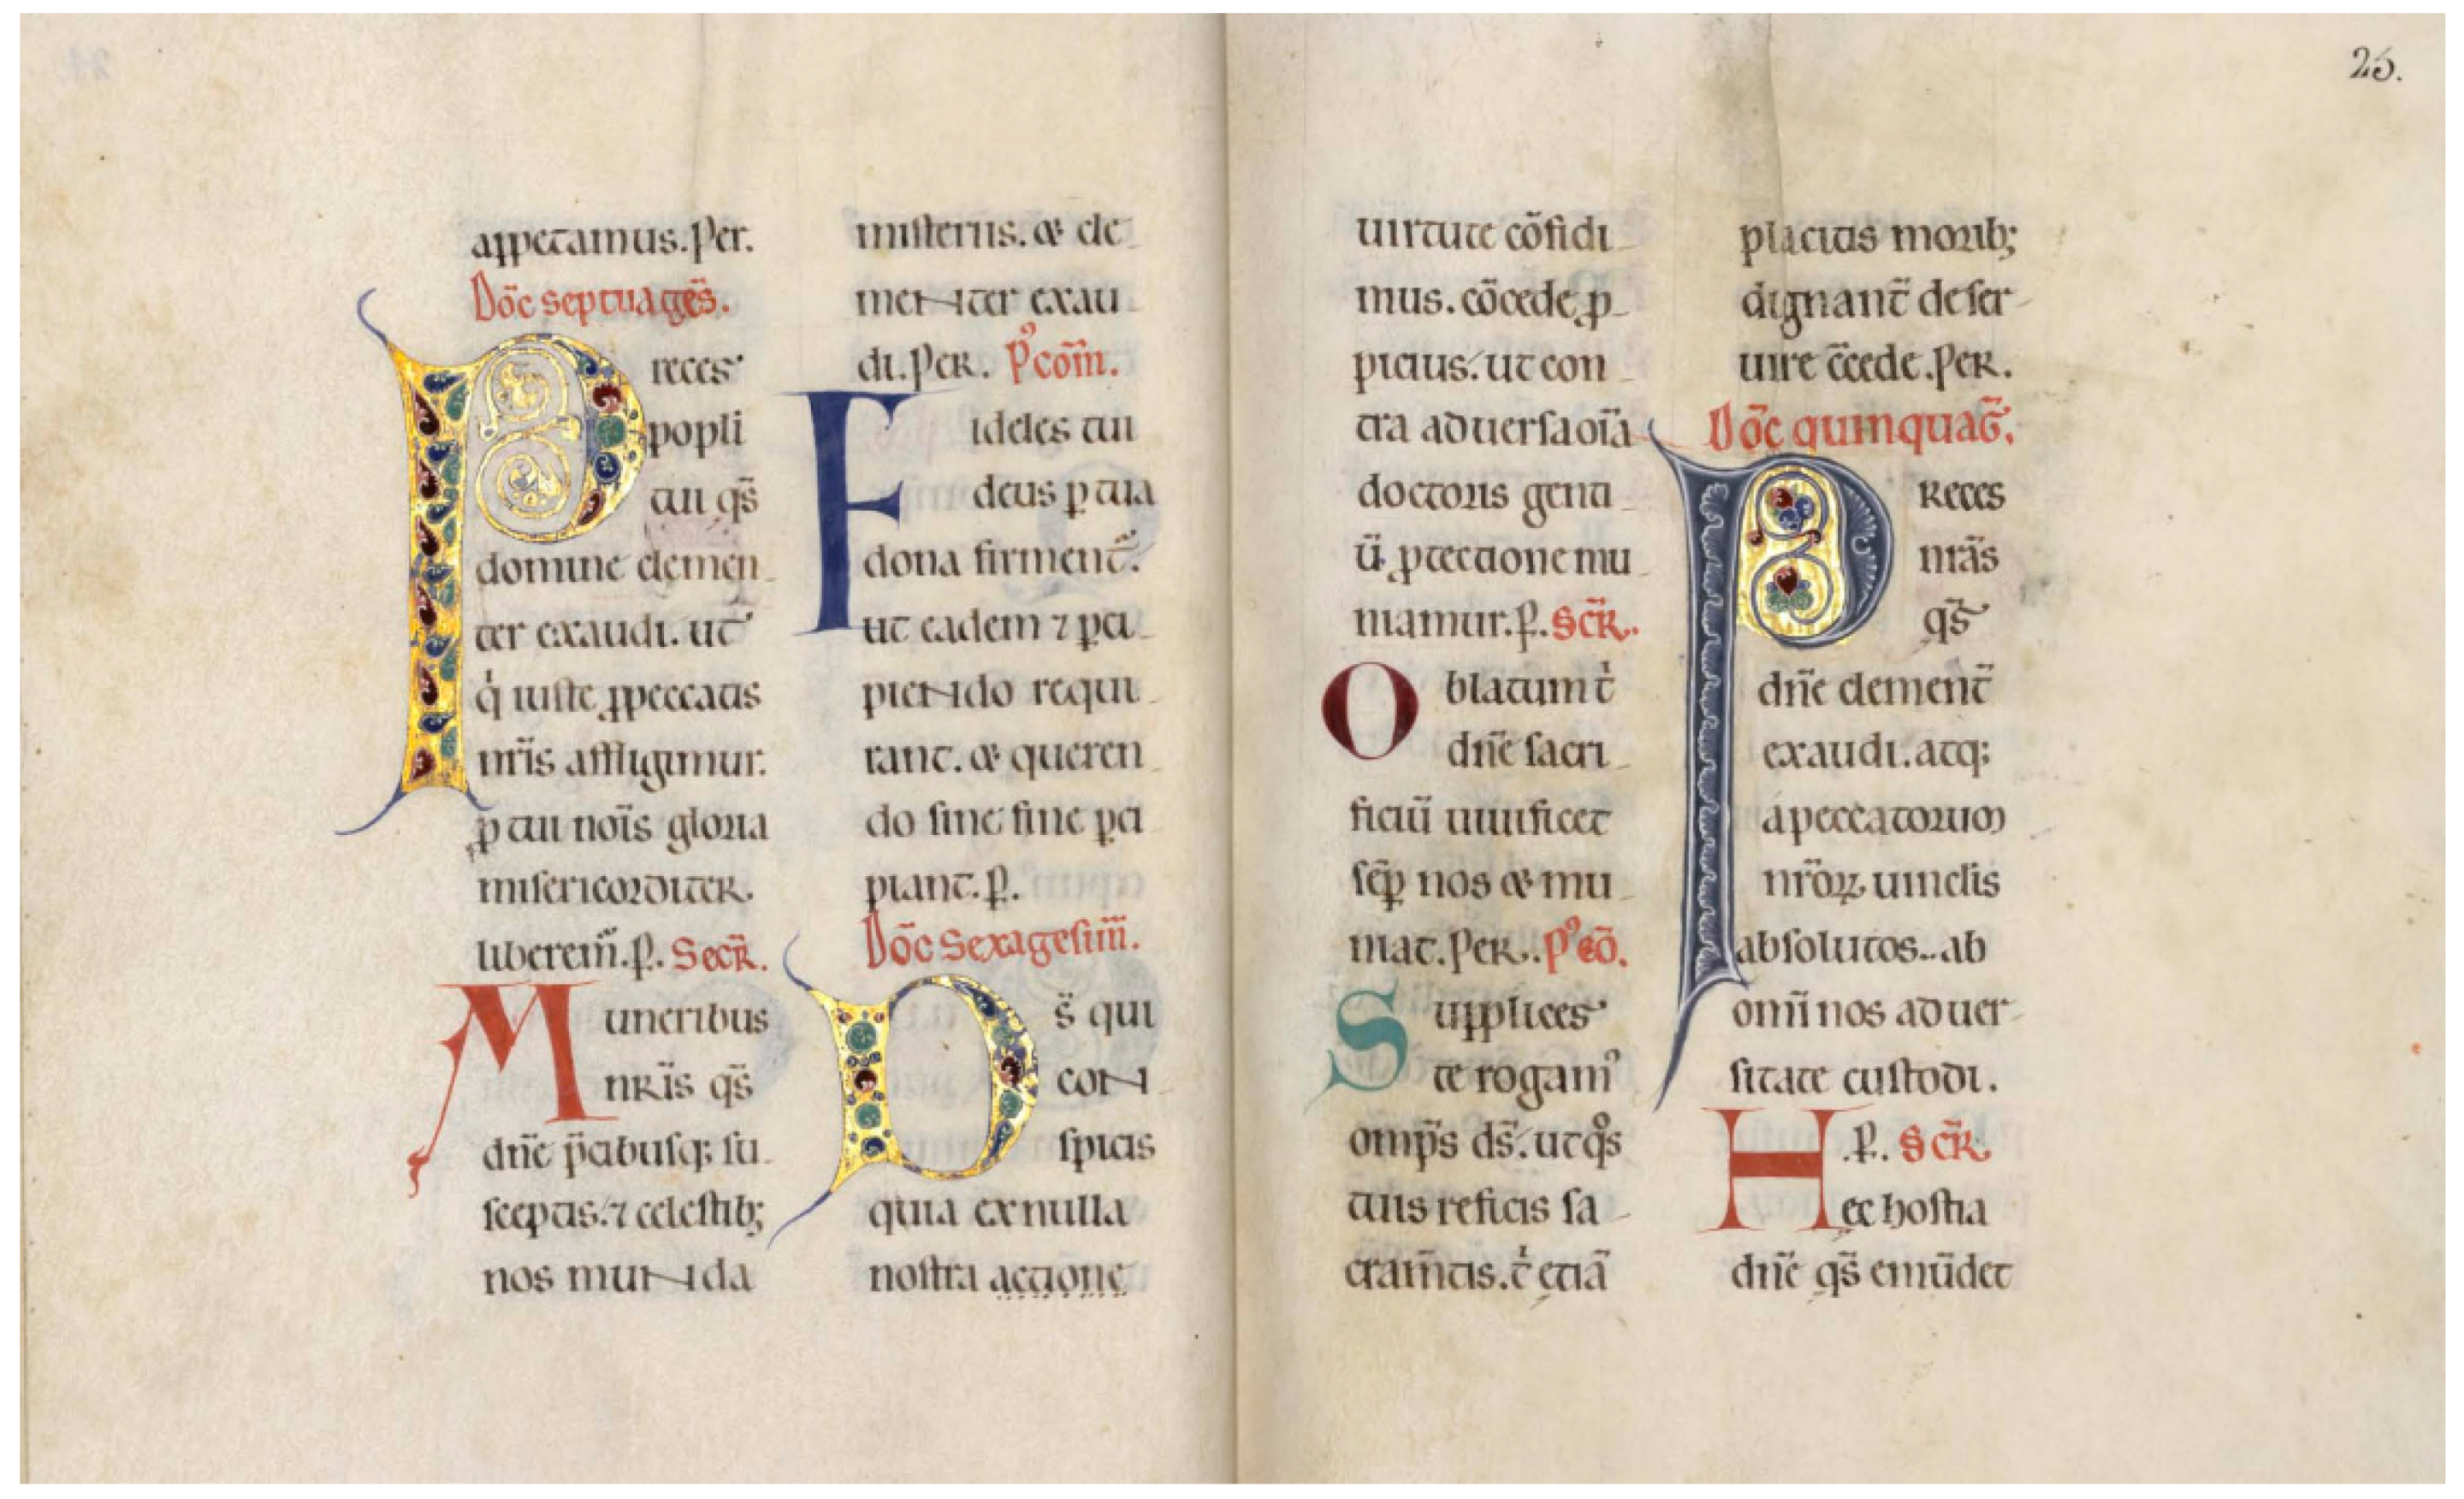 25.
appetamus. Per.
Dōc septuagēs.
Preces
popli
tui qs̄
domine clemen
ter exaudi. ut
q̇ iuste ꝓ peccatis
nr̄is affligimur.
ꝓ tui nōis gloria
misericorditer
liberem̄. ꝑ. Secr̄.
Muneribus
nr̄is qs̄
dn̄e p̄cibusq; su
sceptis. ⁊ celestib;
nos munda
misteriis. & cle
menter exau
di. Per. Pꝰ com̄.
Fideles tui
deus ꝑ tua
dona firment᷑.
ut eadem ⁊ ꝑci
piendo requi
rant. & queren
do sine fine ꝑci
piant. ꝑ.
Dōc sexagesim̄.
Ds̄ qui
con
spicis
quia ex nulla
nostra actione
uirtute cōfidi
mus. cōcede ꝓ
picius. ut con
tra aduersa oīa
doctoris genti
ū ꝓtectione mu
niamur. ꝑ. Scr̄.
Oblatum t̍
dn̄e sacri
ficiū uiuificet
sēp nos & mu
niat. Per. Pꝰ cō.
Supplices
te rogamꝰ
omp̄s ds̄. ut qͦs
tuis reficis sa
cram̄tis. t̍ etiā
placitis morib;
dignant̄ deser
uire c̄cede. Per.
Dōc quinquaḡ.
Preces
nr̄as
qs̄
dn̄e clement̄
exaudi. atq;
a peccatorum
nr̄oꝝ uinclis
absolutos. ab
om̄i nos aduer
sitate custodi.
.ꝑ. Scr̄.
Hec hostia
dn̄e qs̄ emūdet